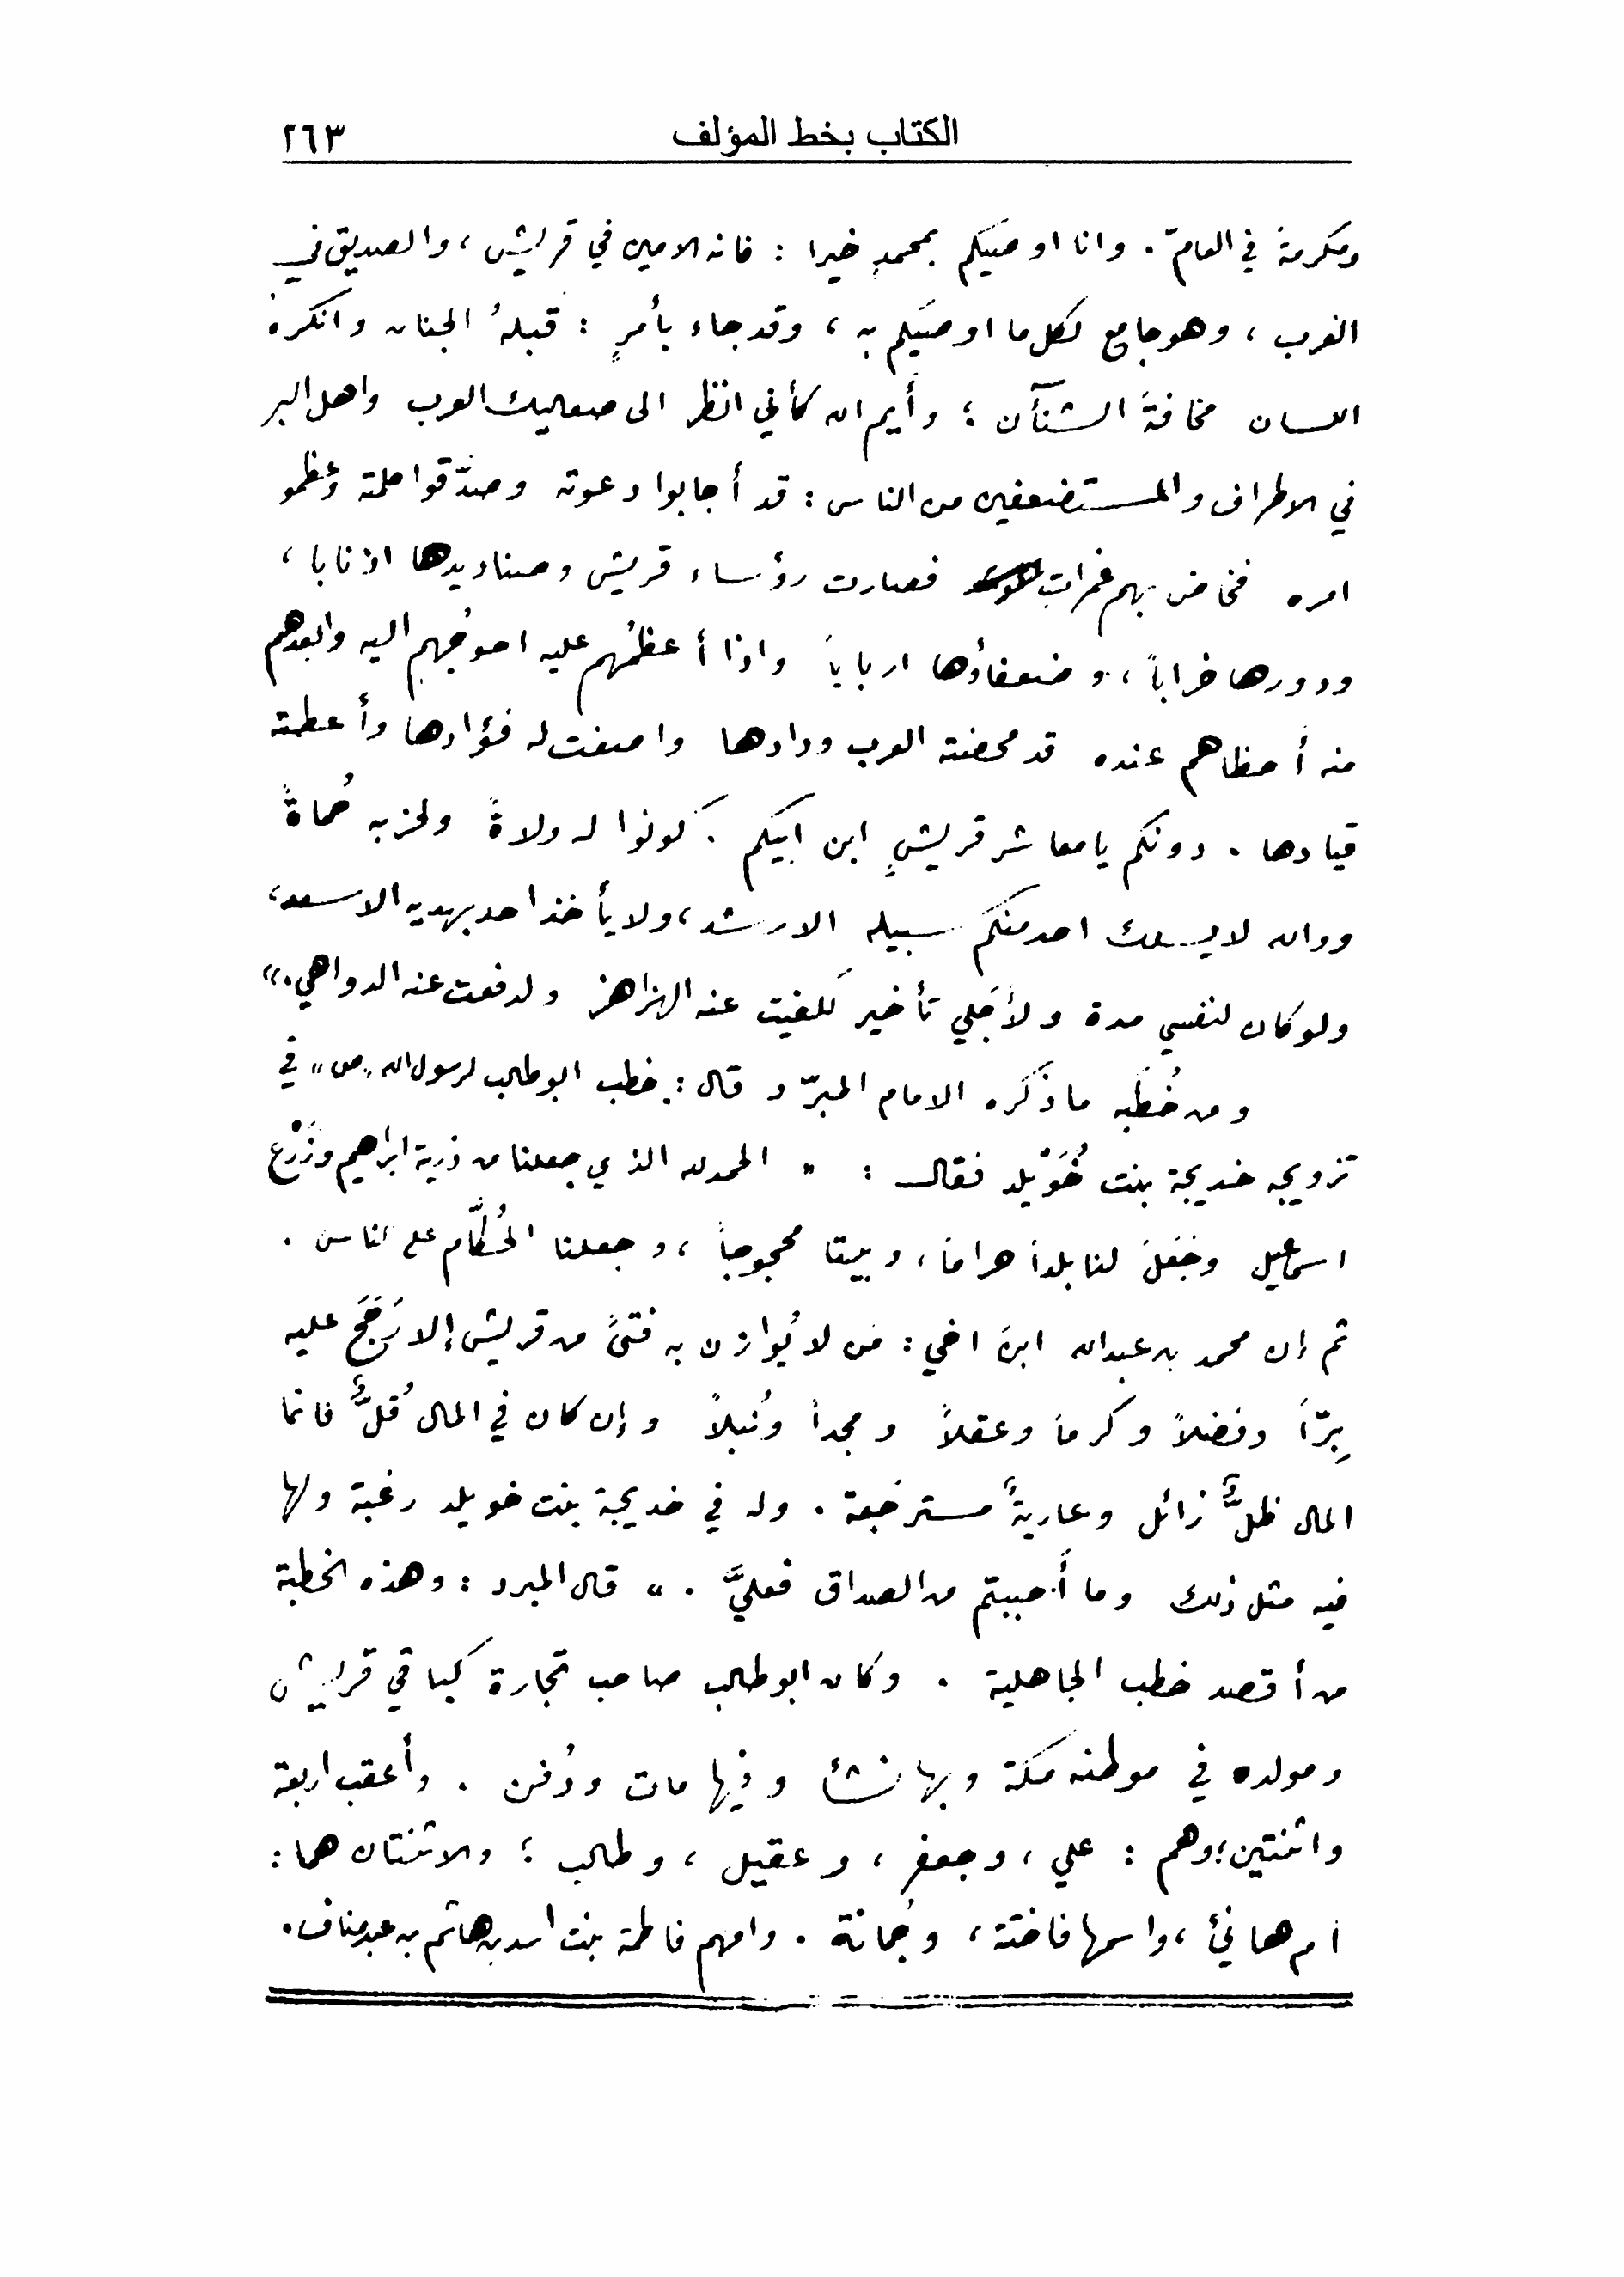 الكتاب بخط المؤلف ٢٦٣
ومكرمة في العامّ . وانا اوصيكم بمحمدٍ خيرا : فانه الامين في قريش ، والصديق في
العرب ، وهو جامع لكل ما اوصيكم به ، وقد جاء بأمرٍ : قبلهُ الجنان وانكره
اللسان مخافةَ الشنآن ؛ وأيم الله كأني انظر الى صعاليك العرب واهل البر
في الاطراف والمستضعفين من الناس : قد أجابوا دعوته وصدّقوا كلمته وعظمو
امره فخاض بهم غمرات فصارت رؤساء قريش وصناديدها اذنابا ،
ودورها خراباً ، وضعفاؤها ارباباً واذا أعظمُهم عليه احوجُهم اليه وابعدهم
منه أحظاهم عنده قد محضته العرب ودادها واصفت له فؤادها وأعطته
قيادها . دونكم يا معاشر قريشٍ ابن ابيكم . كونوا له ولاةً ولحزبه حُماةً
ووالله لا يسلك احد منكم سبيله الا رشد ، ولا يأخذ احد بهديه الا سعد ،
ولو كان لنفسي مدة ولأجَلي تأخير لكفيت عنه الهزاهز ولدفعت عنه الدواهي . »
ومن خُطَبِه ما ذكَره الامام المبرّد قال : خطب ابو طالب لرسول الله "ص" في
تزويجه خديجة بنت خُوَيْلد فقال : " الحمد لله الذي جعلنا من ذرية ابراهيم وزَرْع
اسماعيل وجَعَلَ لنا بلداً حراماً ، وبيتا محجوجاً ، وجعلنا الحُكَّام على الناس .
ثم إن محمد بن عبدالله ابنَ اخي : مَن لا يُوازن به فتىً من قريش إلا رَجَحَ عليه
بِرّاً وفضلاً وكرماً وعقلاً ومجداً ونُبلاً وإن كان في المال قُلٌّ فانما
المال ظلٌّ زائل وعاريةٌ مسترجَعة . وله في خديجة بنت خويلد رغبة ولها
فيه مثل ذلك وما أَحببتم من الصداق فعليَّ . " قال المبرد : وهذه الخطبة
من أقصد خطب الجاهلية . وكان ابو طالب صاحب تجارة كباقي قريش
ومولده في موطنه مكة وبها نشأ وفيها مات ودُفن . وأعقب اربعة
واثنتين ؛ وهم : علي ، وجعفر ، وعقيل ، وطالب ؛ والاثنتان هما :
ام هانئ ، واسمها فاختة ، وجُمانة . وامهم فاطمة بنت اسد بن هاشم بن عبد مناف .